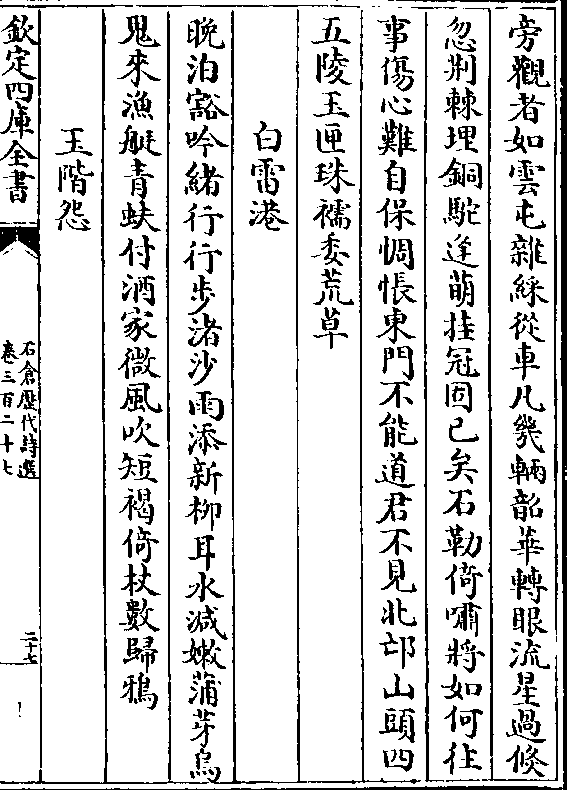 旁觀者如雲屯雜綵從車凡幾輛韶華轉眼流星過倏
忽荆棘埋銅駝逢萌挂冠固已矣石勒倚嘯將如何往
事傷心難自保惆悵東門不能道君不見北邙山頭四
五陵玉匣珠襦委荒草
白雷港
晚泊豁吟緒行行步渚沙雨添新柳耳水減嫩蒲芽烏
鬼來漁艇青蚨付酒家微風吹短褐倚杖數歸鴉
玉階怨
欽定四庫全書
石倉歷代詩選
卷三百二十七
二十七